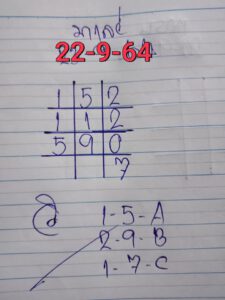 22-9-64
1 5 2
1 1 2
5 9 0
7
1-5-A
2-9-B
1-7-C